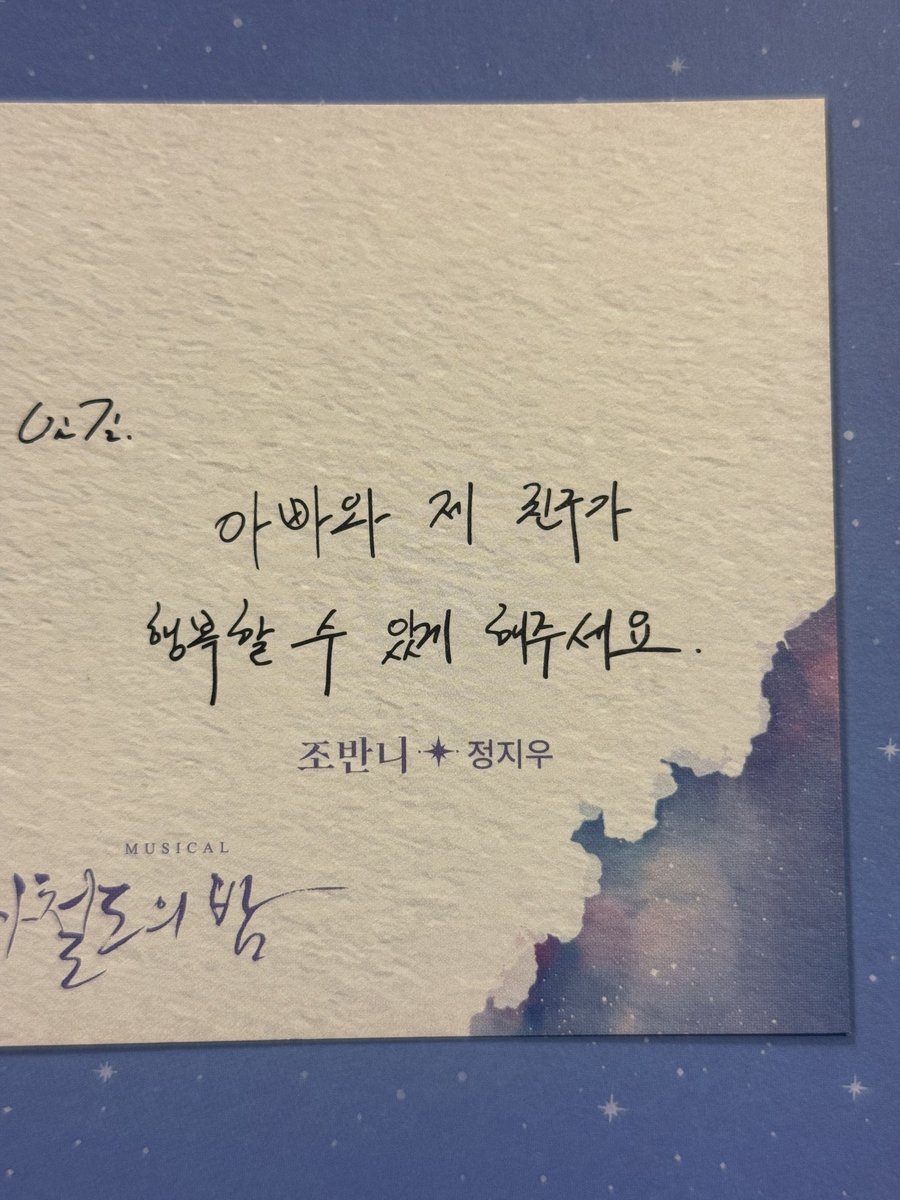 아빠와 제 친구가
행복할 수 있게 해주세요.
조반니 정지우
MUSICAL
철도의 밤